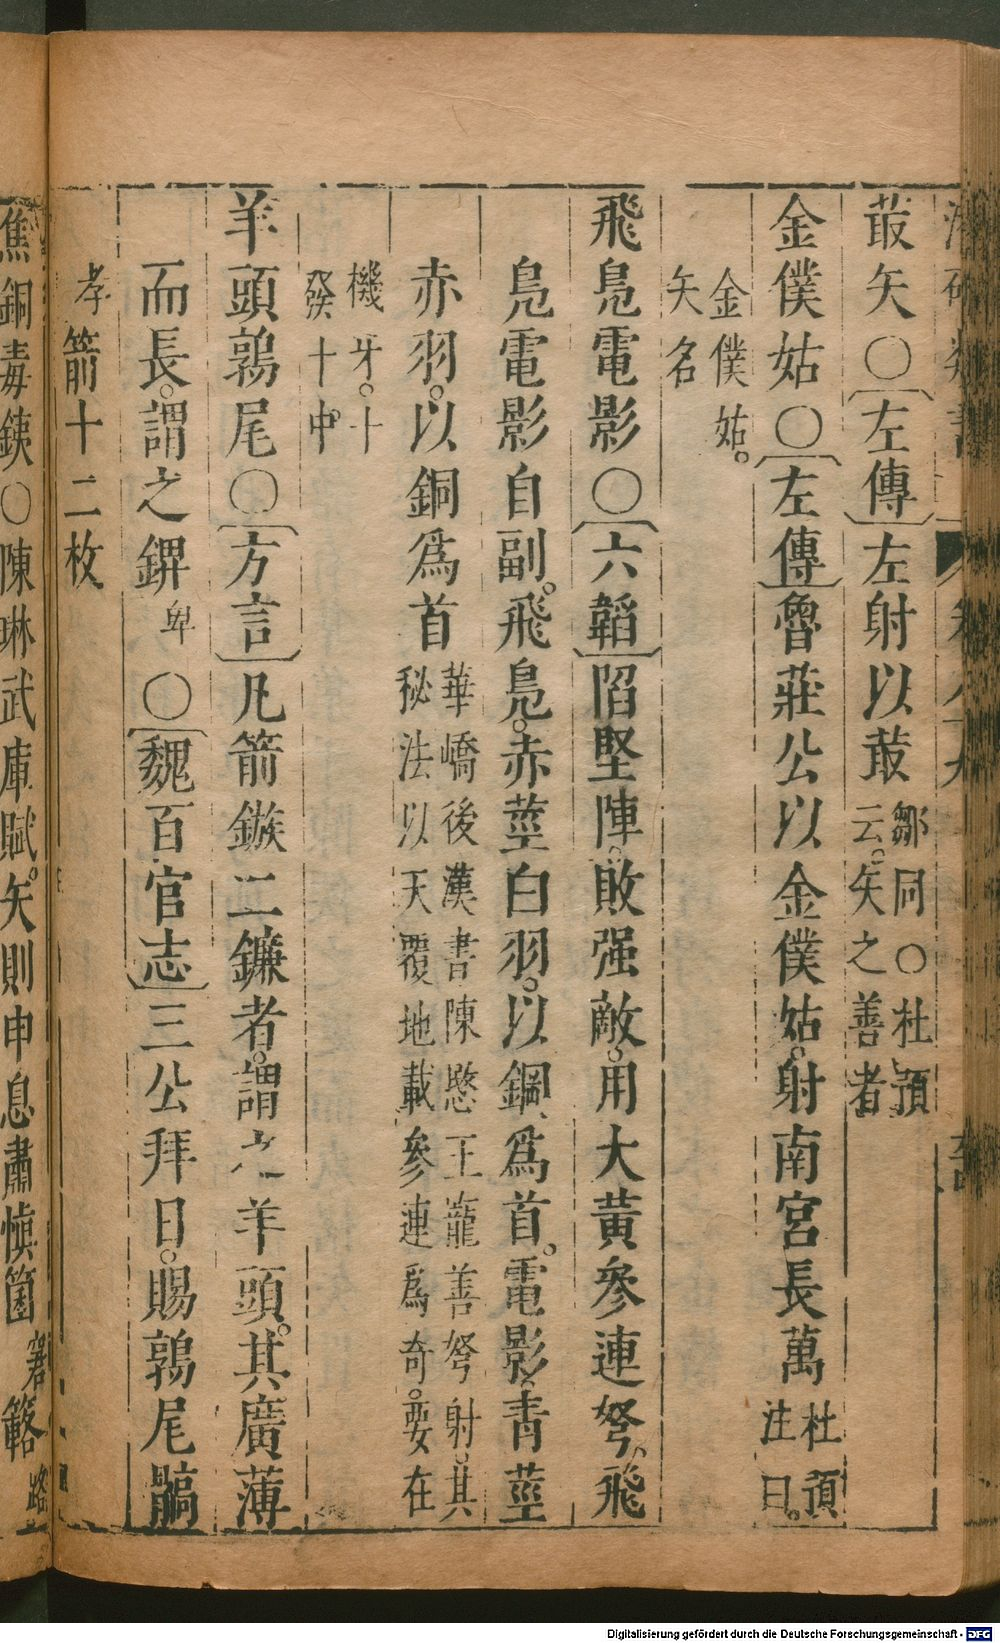 菆矢○左傳左射以菆鄒同○杜預云矢之善者
金僕姑○左傳魯莊公以金僕姑射南宮長萬杜預注曰
金僕姑矢名
飛鳧電影○六韜陷堅陣敗强敵用大黃參連弩飛
鳧電影自副飛鳧赤莖白羽以鋼爲首電影靑莖
赤羽以銅爲首華嶠後漢書陳愍王寵善弩射其秘法以天覆地載參連爲奇要在
機牙十發十中
羊頭鶉尾○方言凡箭鏃二鐮者謂之羊頭其廣薄
而長謂之錍卑○魏百官志三公拜日賜鶉尾髇
孝箭十二枚
焦銅毒鉄○陳琳武庫賦矢則申息肅愼箘窘簵路
Digitalisierung gefördert durch die Deutsche Forschungsgemeinschaft - DFG